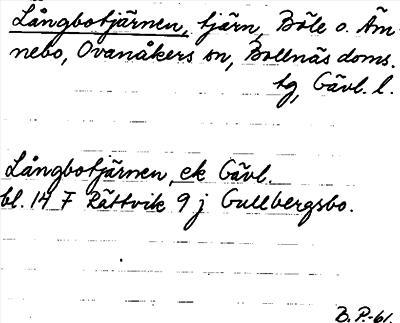 Långbotjärnen, tjärn, Böle o. Äm-
nebo, Ovanåkers sn, Bollnäs doms.
tg, Gävl. l.
Långbotjärnen, ek Gävl.
bl. 14 F Rättvik 9 j Gullbergsbo.
B.P.-61.